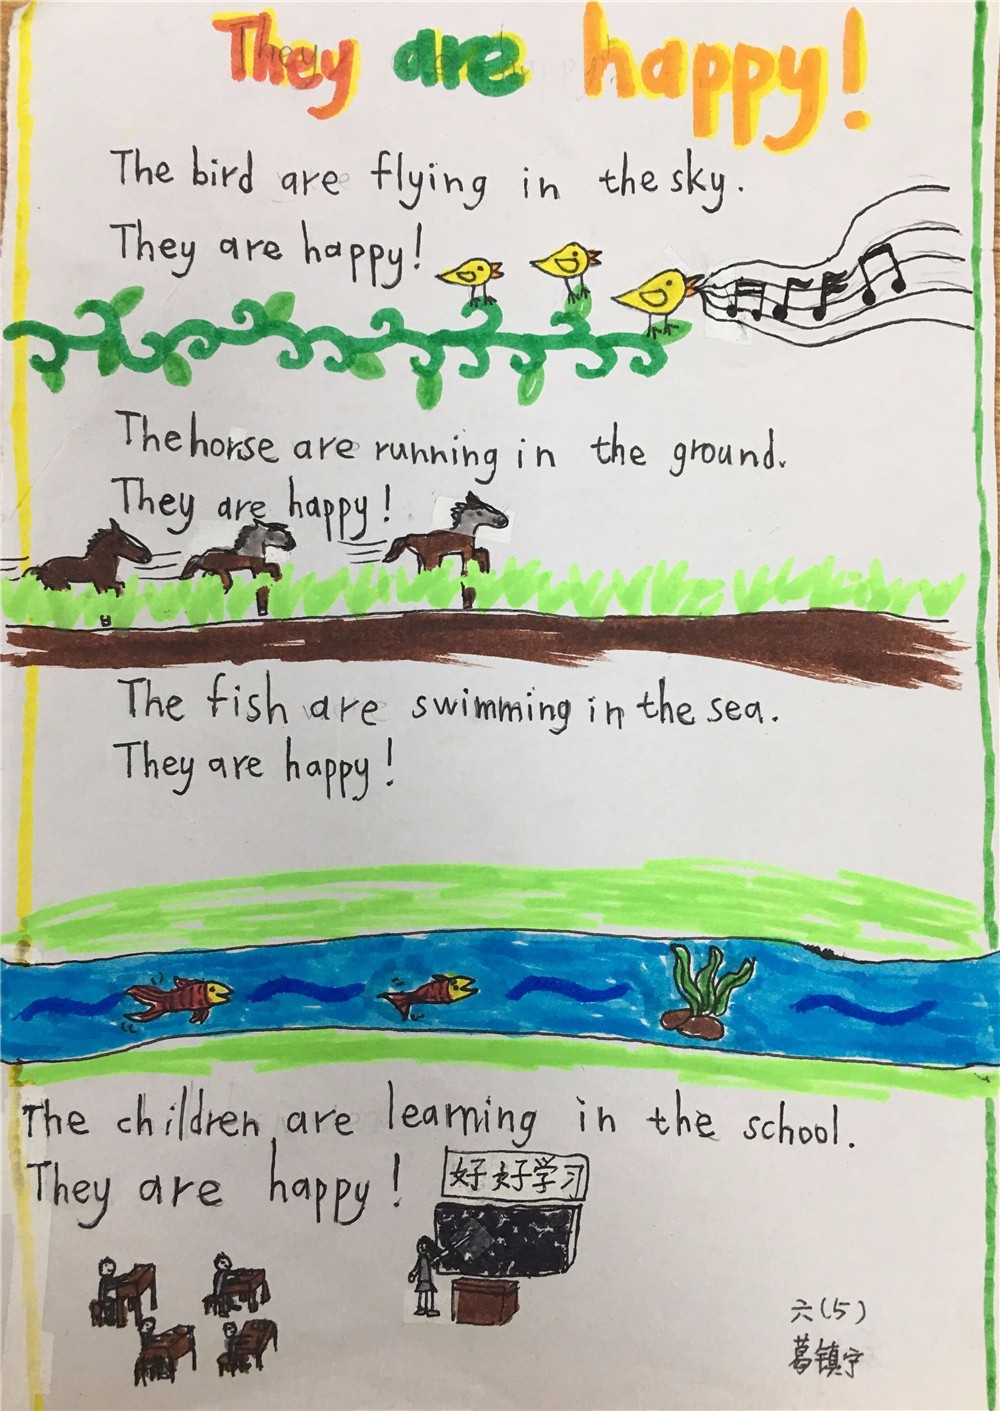 They are happy!
The bird are flying in the sky.
They are happy!
The horse are running in the ground.
They are happy!
The fish are swimming in the sea.
They are happy!
The children are learning in the school.
They are happy!
好好学习
六(5)
葛镇宁